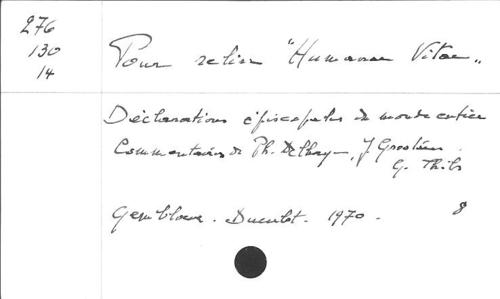 276
130
14
Pour relire "Humanae Vitae"
Déclarations épiscopales du monde entier
Commentaires de Ph. Delhaye, J. Grootaers
G. Thils
Gembloux. Duculot. 1970.
8